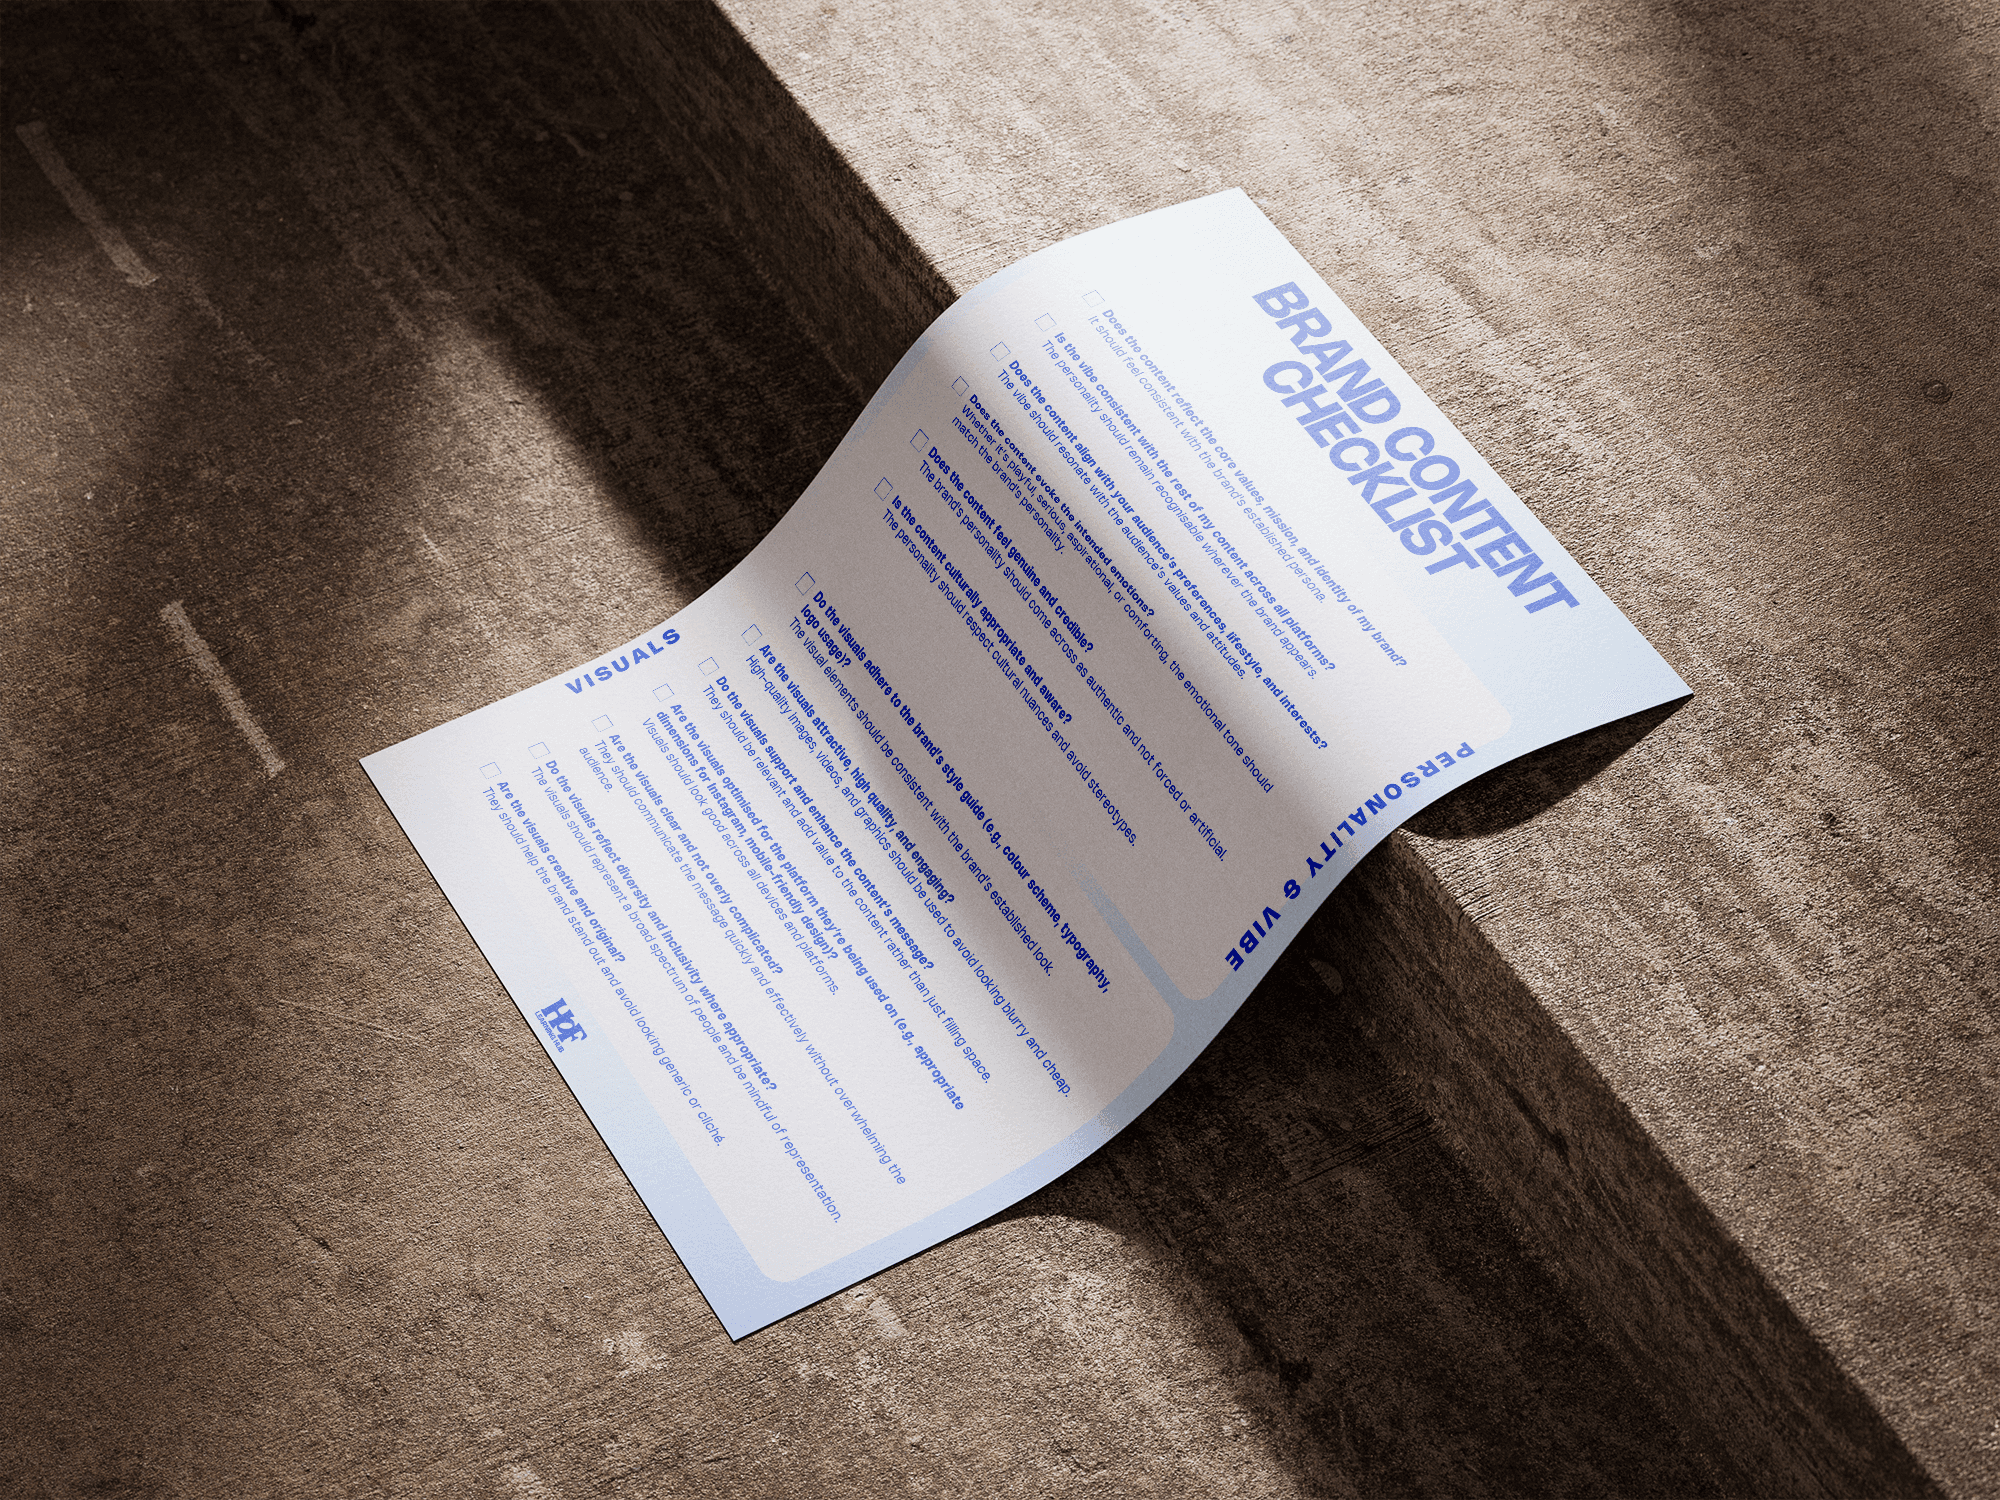 BRAND CONTENT
CHECKLIST
PERSONALITY & VIBE
Does the content reflect the core values, mission, and identity of my brand?
It should feel consistent with the brand's established persona.
Is the vibe consistent with the rest of my content across all platforms?
The personality should remain recognisable wherever the brand appears.
Does the content align with your audience's preferences, lifestyle, and interests?
The vibe should resonate with the audience's values and attitudes.
Does the content evoke the intended emotions?
Whether it's playful, serious, aspirational, or comforting, the emotional tone should
match the brand's personality.
Does the content feel genuine and credible?
The brand's personality should come across as authentic and not forced or artificial.
Is the content culturally appropriate and aware?
The personality should respect cultural nuances and avoid stereotypes.
VISUALS
Do the visuals adhere to the brand's style guide (e.g., colour scheme, typography,
logo usage)?
The visual elements should be consistent with the brand's established look.
Are the visuals attractive, high quality, and engaging?
High-quality images, videos, and graphics should be used to avoid looking blurry and cheap.
Do the visuals support and enhance the content's message?
They should be relevant and add value to the content rather than just filling space.
Are the visuals optimised for the platform they're being used on (e.g., appropriate
dimensions for Instagram, mobile-friendly design)?
Visuals should look good across all devices and platforms.
Are the visuals clear and not overly complicated?
They should communicate the message quickly and effectively without overwhelming the
audience.
Do the visuals reflect diversity and inclusivity where appropriate?
The visuals should represent a broad spectrum of people and be mindful of representation.
Are the visuals creative and original?
They should help the brand stand out and avoid looking generic or cliché.
HOF
LEARNING HUB